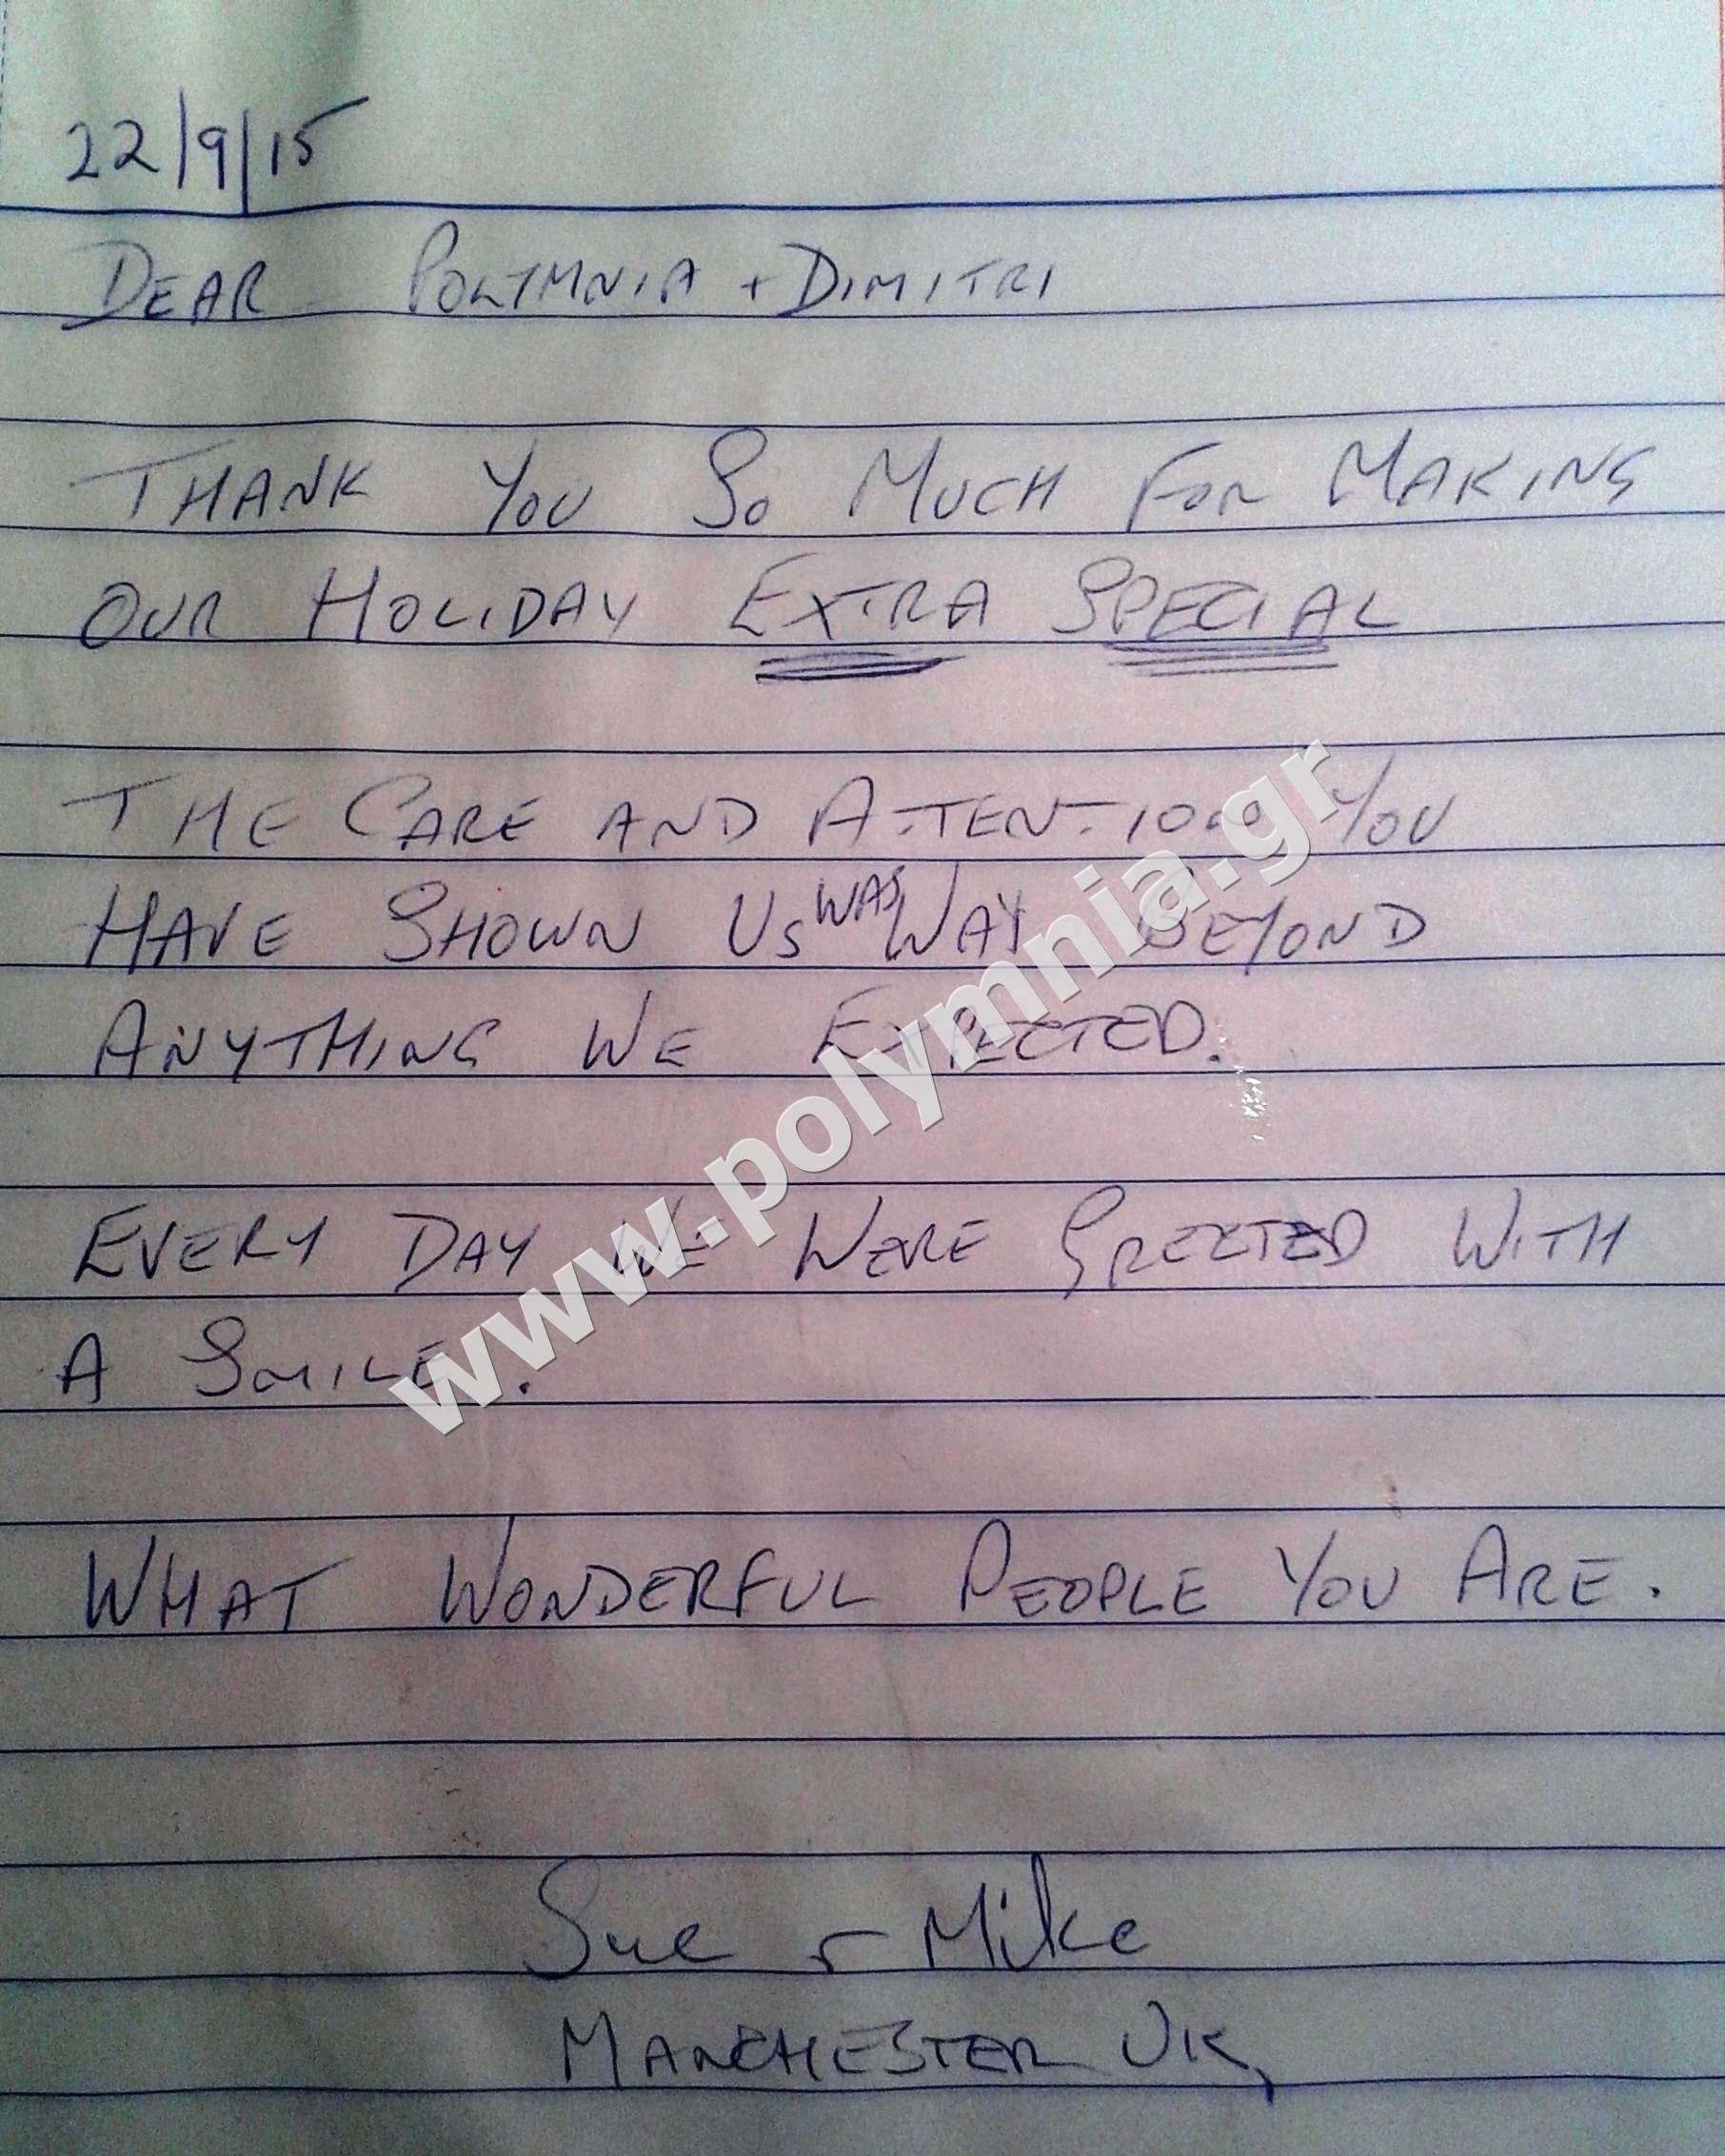 22/9/15
DEAR POLYMNIA + DIMITRI
THANK YOU SO MUCH FOR MAKING
OUR HOLIDAY EXTRA SPECIAL
THE CARE AND ATTENTION YOU
HAVE SHOWN US WAS WAY BEYOND
ANYTHING WE EXPECTED.
EVERY DAY WE WERE GREETED WITH
A SMILE.
WHAT WONDERFUL PEOPLE YOU ARE.
Sue + Mike
MANCHESTER UK,
www.polymnia.gr